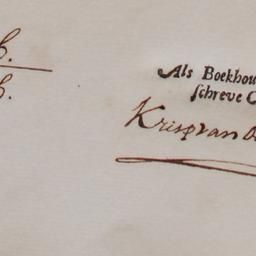 Als Boekhou
schreve C
Krisp van